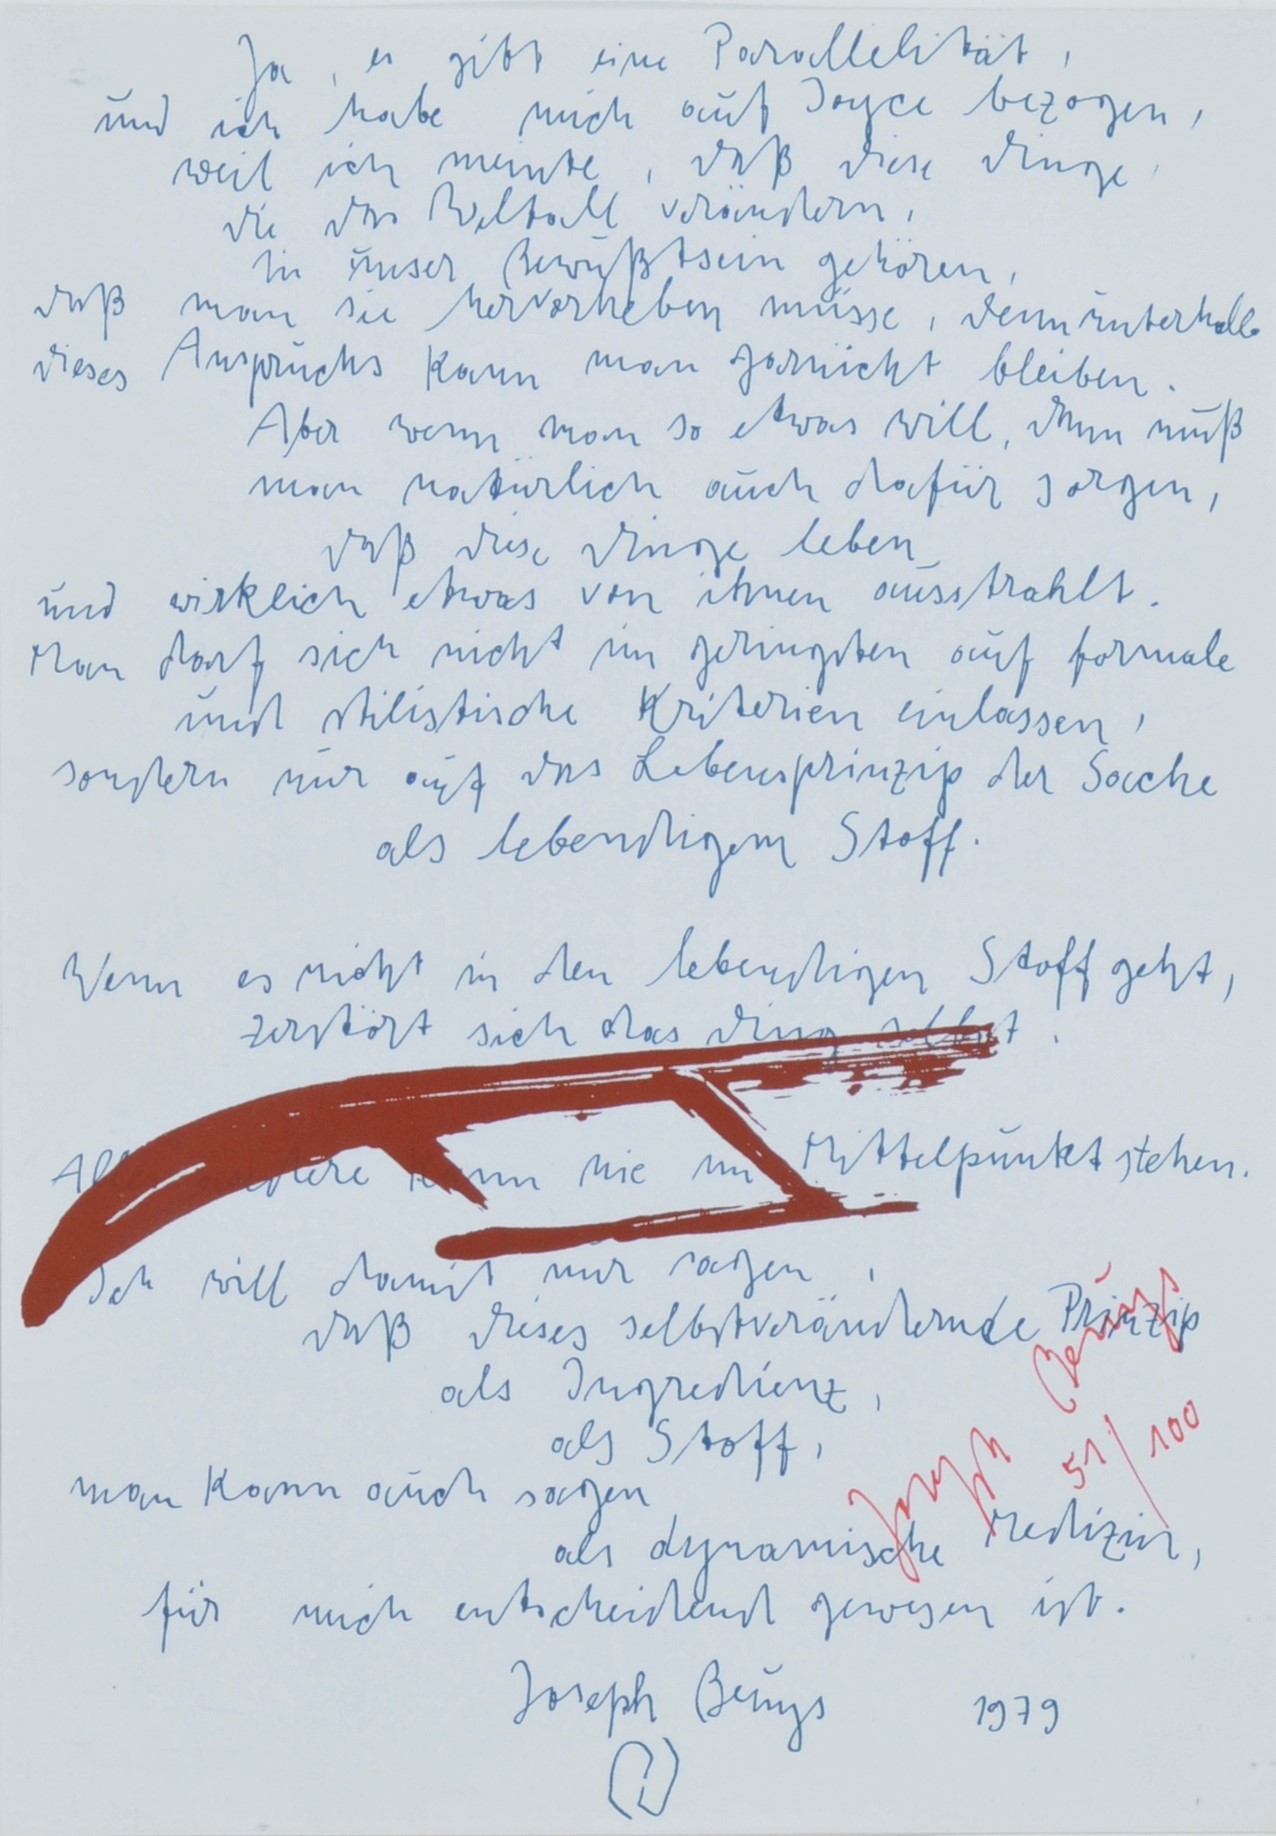 Ja, es gibt eine Parallelität,
und ich habe mich auf Joyce bezogen,
weil ich meinte, daß diese Dinge,
die das Weltall verändern,
in unser Bewußtsein gehören,
daß man sie hervorheben müsse, denn unterhalb
dieses Anspruchs kann man garnicht bleiben.
Aber wenn man so etwas will, dann muß
man natürlich auch dafür sorgen,
daß diese Dinge leben
und wirklich etwas von ihnen ausstrahlt.
Man darf sich nicht im geringsten auf formale
und stilistische Kriterien einlassen,
sondern nur auf das Lebensprinzip der Sache
als lebendigem Stoff.
Wenn es nicht in den lebendigen Stoff geht,
zerstört sich das Ding selbst.
Alles andere kann nie im Mittelpunkt stehen.
Ich will damit nur sagen,
daß dieses selbstverändernde Prinzip
als Ingredienz,
als Stoff,
man kann auch sagen
als dynamische Medizin,
für mich entscheidend gewesen ist.
Joseph Beuys 1979
Joseph Beuys
51/100